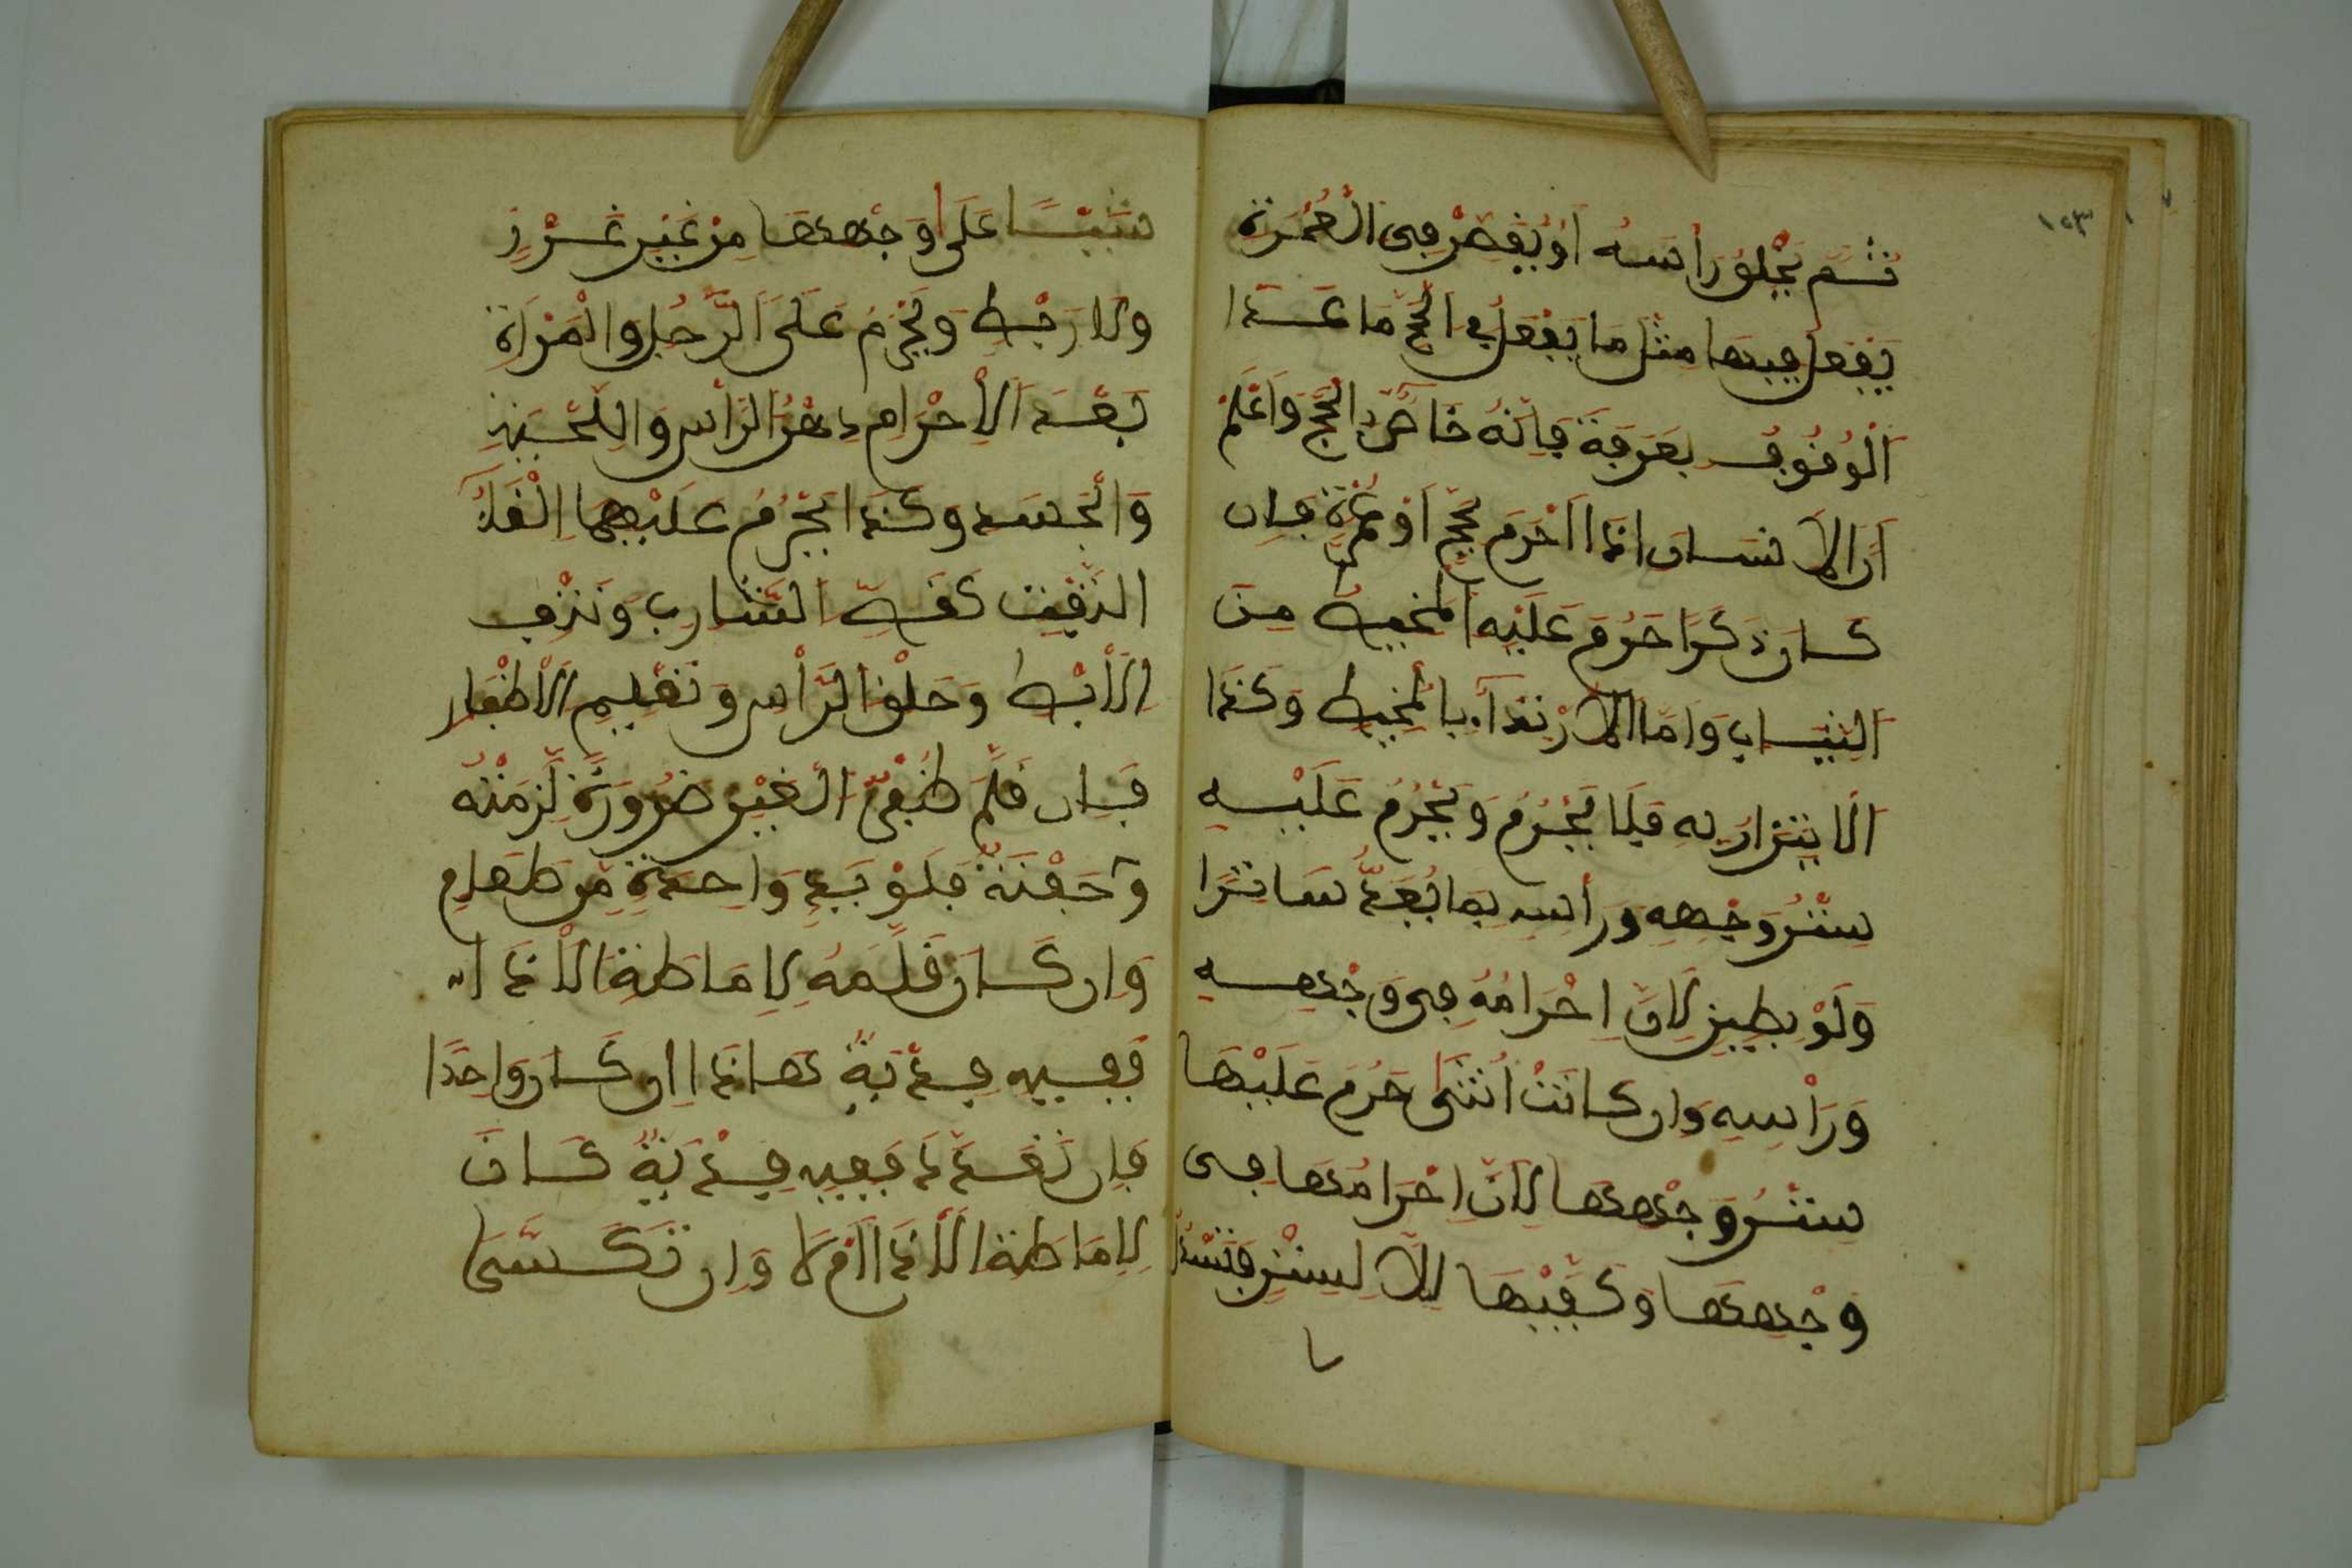 ١٤٣
ثُمَّ يَحْلِقُ رَأْسَهُ أَوْ يُقَصِّرْ فِى الْعُمْرَةِ
يَفْعَلُ فِيهَا مثْل مَا يَفْعَلُ فِي الْحَجِّ مَا عَدَا
الْوُقُوفُ بِعَرَفَةَ فَإِنَّهُ خَاصٌّ بِالْحَجِّ وَاعْلَمْ
أَنَّ الْإِنسَانَ إذَا أَحْرَمَ بِحَجٍّ أَوْ عُمْرَةٍ فإن
كَانَ ذَكَرًا حَرُمَ عَلَيْهِ الْمخيطُ مِنَ
الثِّيَابِ وَأَمَّا الِارْتِدَآءُ بِالْمَخِيطِ وَكَذَا
الِاتِّزَارُ بِهِ فَلَا يَحْرُمُ وَيَحْرُمُ عَلَيْهِ
سِتْرُ وَجْهِهِ وَرَأْسِهِ بِمَا يُعَدُّ سَاتِرًا
وَلَوْ بِطِينٍ لِأَنَّ إِحْرَامُهُ فِى وَجْهِهِ
وَرَأْسِهِ وَإن كَانَتْ أُنْثَى حَرُمَ عَلَيْهَا
سِتْرُ وَجْهِهَا لِأَنَّ إِحْرَامُهَا فِى
وَجْهِهَا وَكَفَّيْهَا إِلَّا لِسِتْرٍ فَتَسْدُلُ
شَيْئًا عَلَى وَجْهِهَا مِنْ غَيْرِ غَرْزٍ
وَلَا رَبْطٍ وَيَحْرُمُ عَلَى الرَّجُلِ وَالْمَرْأَةِ
بَعْدَ الْإِحْرَامِ دهْنُ الرَّأْسِ وَاللِّحْيَةِ
وَالْجَسَدِ وَكَذَا يَحْرُمُ عَلَيْهِمَا إِلْقَآءُ
التَّفَثِ كَقَصِّ الشَّارِبِ وَنَتْفِ
الْأَبْطِ وَحَلْقِ الرَّأْسِ وَتَقْلِيمِ الْأَظْفَارِ
فَإن قَلَّمَ ظُفْرٌ الْغَيْرِ ضَرُورَةٍ لَزِمَتْهُ
وَحَفْنَةٌ مِلْؤُ يَدٍ وَاحِدَةٍ مِّن طَعَامٍ
وَإن كَانَ قَلَّمَهُ لِإِمَاطَةِ الْأَذَاء
فَفِيهِ فِدْيَةٌ هَاذَا إِن كَانَ وَاحِدًا
فَإِن تَعَدَّدَ فَفِيهِ فِدْيَةٌ كَانَ
لِإِمَاطَةِ الْأَذَا أَمْ لَا وَإِن تَكَسَّرَ